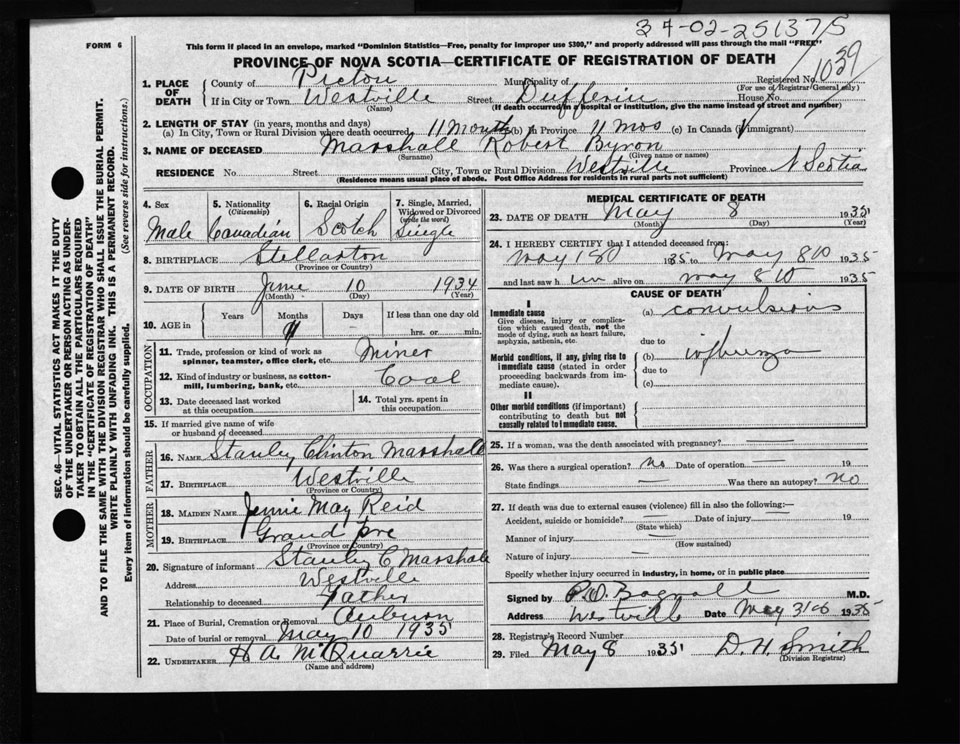 34-02-251375
FORM 6
This form if placed in an envelope, marked "Dominion Statistics—Free, penalty for improper use $300," and properly addressed will pass through the mail "FREE"
PROVINCE OF NOVA SCOTIA—CERTIFICATE OF REGISTRATION OF DEATH
1. PLACE OF DEATH
County of Pictou Municipality of Registered No. 1059
(For use of Registrar General only)
If in City or Town Westville Street Dufferin House No.
(Name) (If death occurred in a hospital or institution, give the name instead of street and number)
2. LENGTH OF STAY (in years, months and days)
(a) In City, Town or Rural Division where death occurred 11 Months (b) in Province 11 mos (c) In Canada (if immigrant)
3. NAME OF DECEASED Marshall Robert Byron
(Surname) (Given name or names)
RESIDENCE No. Street City, Town or Rural Division Westville Province N Scotia
(Residence means usual place of abode. Post Office Address for residents in rural parts not sufficient)
SEC. 46—VITAL STATISTICS ACT MAKES IT THE DUTY
OF THE UNDERTAKER OR PERSON ACTING AS UNDER-
TAKER TO OBTAIN ALL THE PARTICULARS REQUIRED
IN THE "CERTIFICATE OF REGISTRATION OF DEATH"
AND TO FILE THE SAME WITH THE DIVISION REGISTRAR WHO SHALL ISSUE THE BURIAL PERMIT.
WRITE PLAINLY WITH UNFADING INK. THIS IS A PERMANENT RECORD.
Every item of information should be carefully supplied. (See reverse side for instructions.)
4. Sex Male
5. Nationality (Citizenship) Canadian
6. Racial Origin Scotch
7. Single, Married, Widowed or Divorced (write the word) Single
8. BIRTHPLACE Stellarton
(Province or Country)
9. DATE OF BIRTH June 10 1934
(Month) (Day) (Year)
10. AGE in Years Months Days If less than one day old
hrs. or min.
OCCUPATION
11. Trade, profession or kind of work as spinner, teamster, office clerk, etc. Miner
12. Kind of industry or business, as cotton-mill, lumbering, bank, etc. Coal
13. Date deceased last worked at this occupation
14. Total yrs. spent in this occupation
15. If married give name of wife or husband of deceased
FATHER
16. NAME Stanley Clinton Marshall
17. BIRTHPLACE Westville
(Province or Country)
MOTHER
18. MAIDEN NAME Jennie May Reid
19. BIRTHPLACE Grand pre
(Province or Country)
20. Signature of informant Stanley C Marshall
Address Westville
Relationship to deceased Father
21. Place of Burial, Cremation or Removal Auburn
Date of burial or removal May 10 1935
22. UNDERTAKER H A McQuarrie
(Name and address)
MEDICAL CERTIFICATE OF DEATH
23. DATE OF DEATH May 8 1935
(Month) (Day) (Year)
24. I HEREBY CERTIFY that I attended deceased from:
May 1935 to May 8th 1935
and last saw him alive on may 8th 1935
CAUSE OF DEATH
I
Immediate cause
Give disease, injury or complication which caused death, not the mode of dying, such as heart failure, asphyxia, asthenia, etc.
(a) convulsions
due to
Morbid conditions, if any, giving rise to immediate cause (stated in order proceeding backwards from immediate cause).
(b) influenza
due to
(c)
II
Other morbid conditions (if important) contributing to death but not causally related to immediate cause.
25. If a woman, was the death associated with pregnancy? —
26. Was there a surgical operation? no Date of operation — 19
State findings — Was there an autopsy? no
27. If death was due to external causes (violence) fill in also the following:—
Accident, suicide or homicide? — Date of injury — 19
(State which)
Manner of injury —
(How sustained)
Nature of injury —
Specify whether injury occurred in industry, in home, or in public place
Signed by M.D.
Address Westville Date May 1935
28. Registrar's Record Number
29. Filed May 8 1935 D. H. Smith
(Division Registrar)